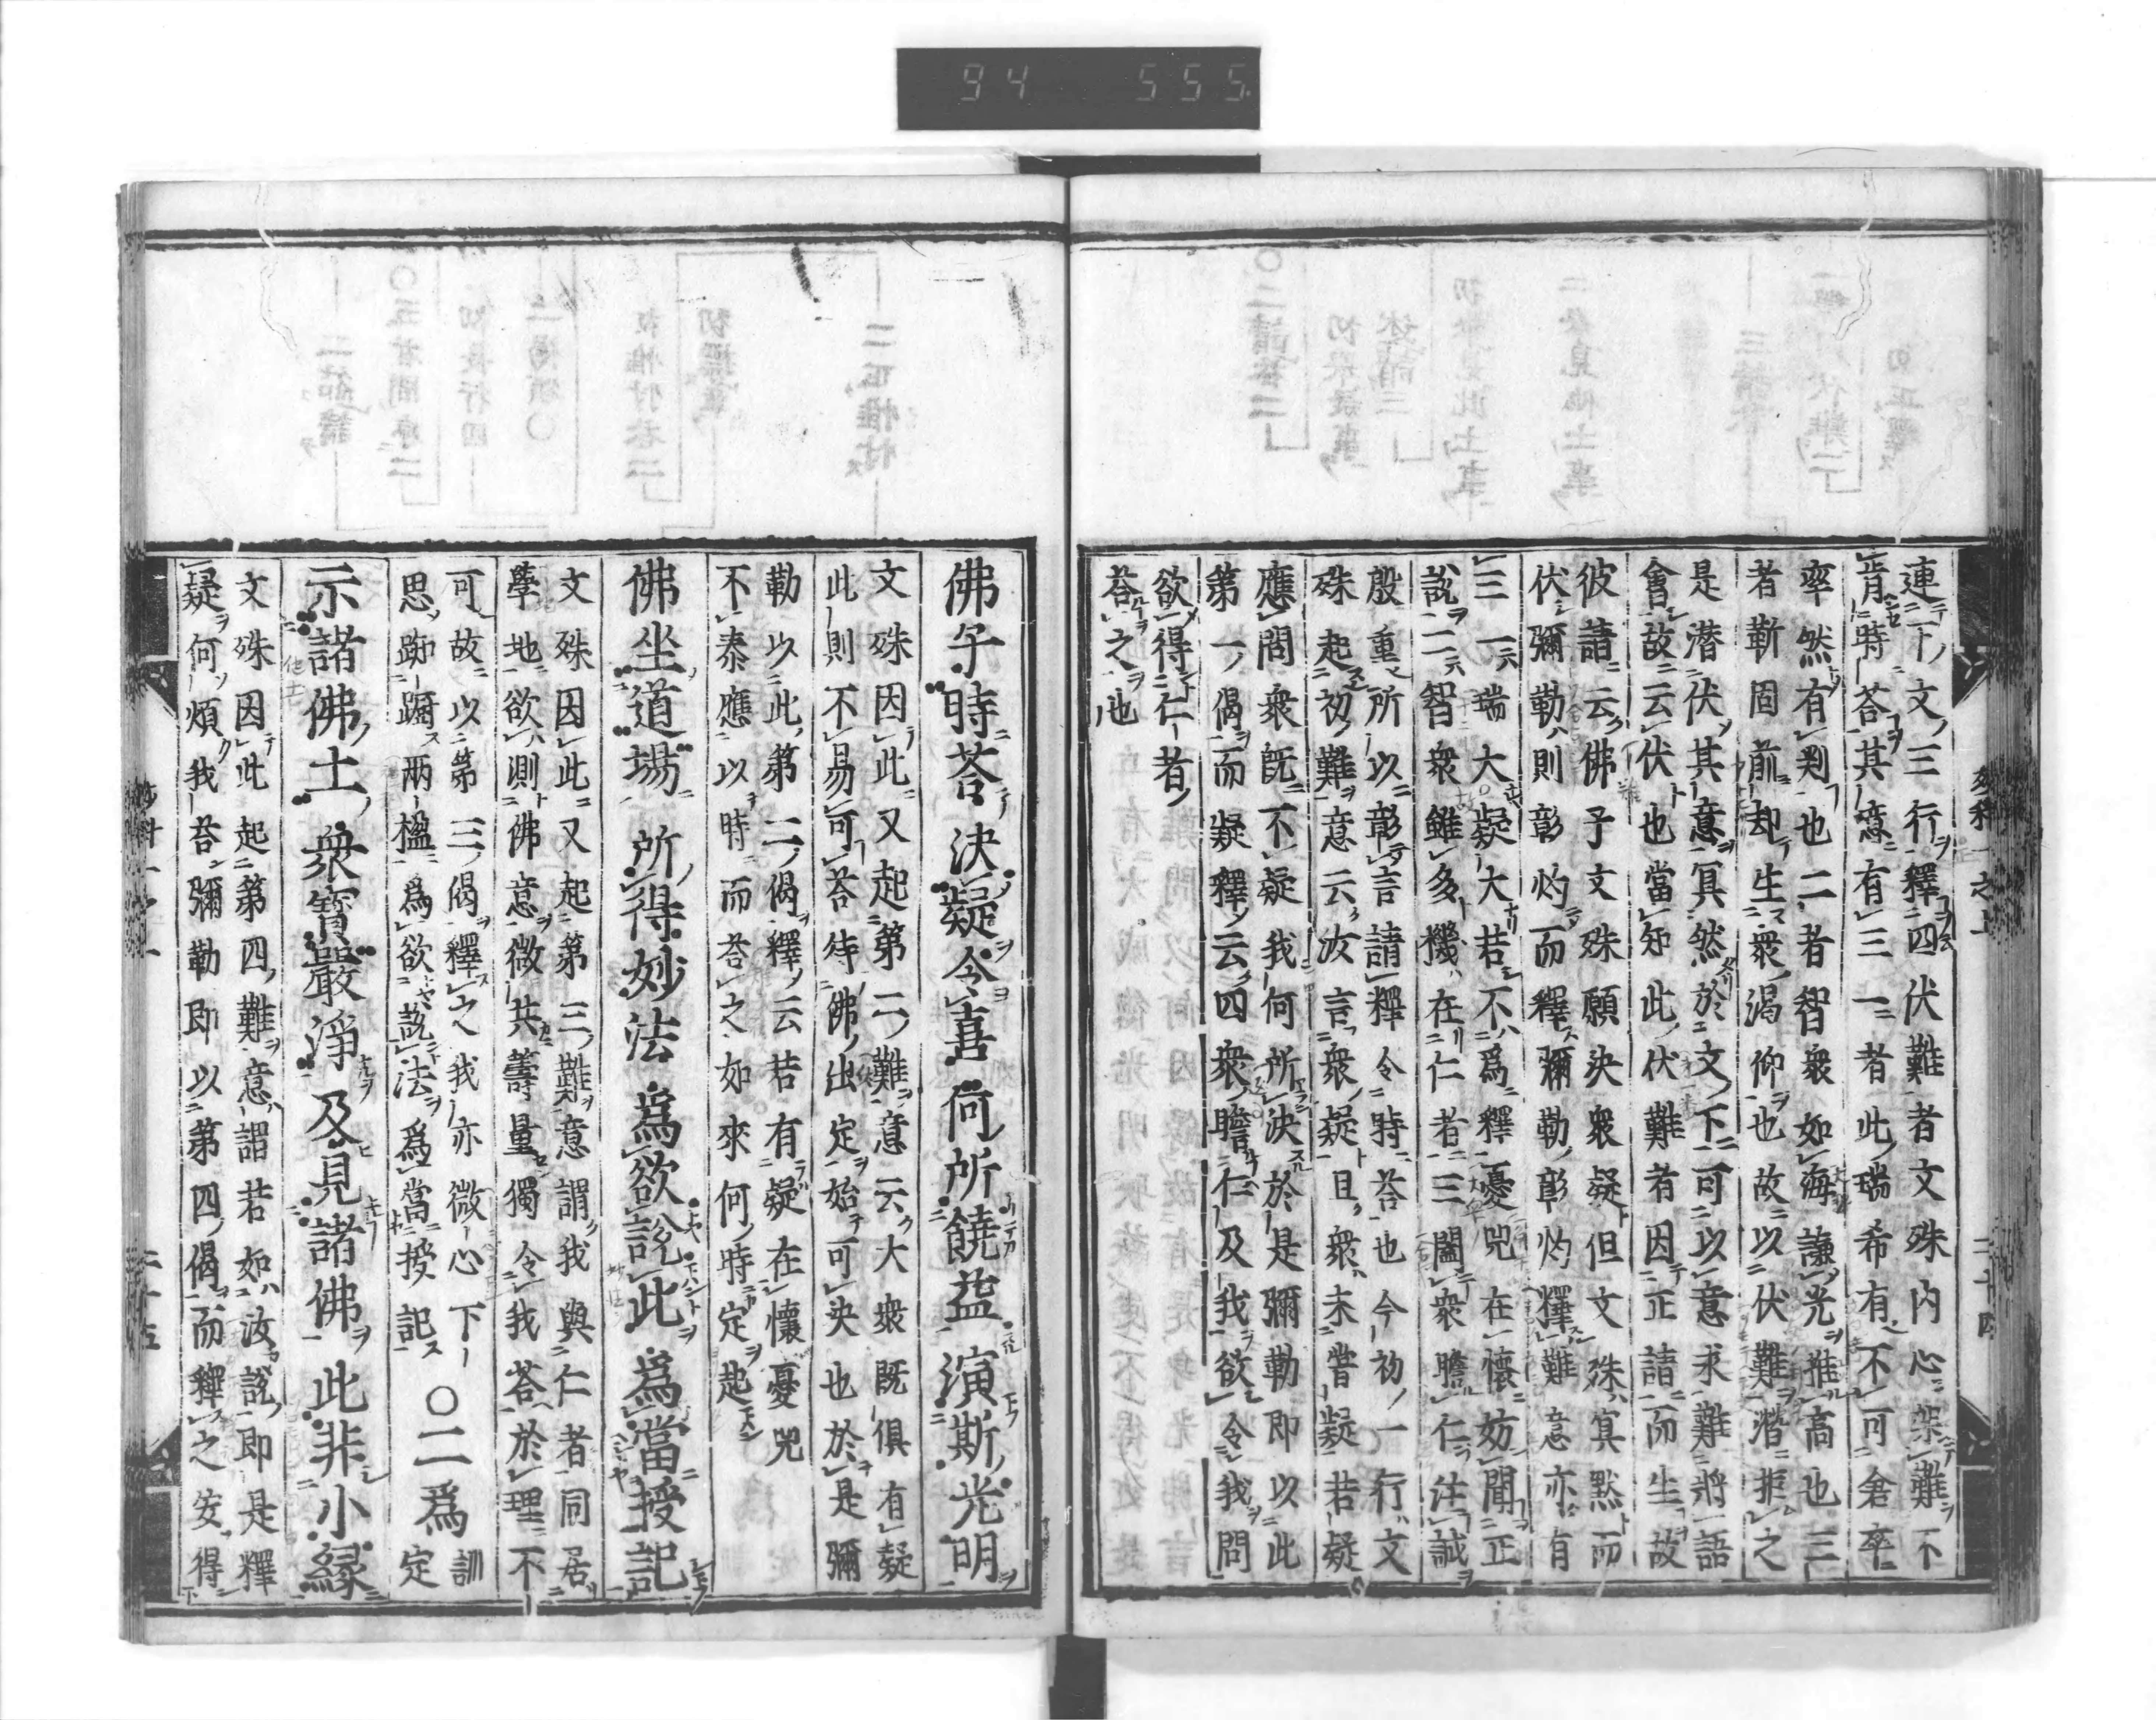 94 555.
連下文三行釋四伏難者文殊內心架難不
肯時荅其意有三一者此瑞希有不可倉卒
率然有判也二者智衆如海謙光推高也三
者靳固前却生衆渴仰也故以伏難潛拒之
是潛伏其意冥然於文下可以意求難將語
會故云伏也當知此伏難者因正請而生故
彼請云佛子文殊願決衆疑但文殊冥默而
伏彌勒則彰灼而釋彌勒彰灼釋難意亦有
三一瑞大疑大若不爲釋憂兕在懷妨聞正
說二智衆雖多機在仁者三闔衆瞻仁注誠
殷重所以彰言請釋令時荅也今初一行文
殊起初難意云汝言衆疑且衆未甞疑若疑
應問衆旣不疑我何所決於是彌勒即以此
第一偈而疑釋云四衆瞻仁及我欲令我問
欲得仁者
荅之也
佛子時荅決疑令喜何所饒益演斯光明
文殊因此又起第二難意云大衆既俱有疑
此則不易可荅待佛出定始可決也於是彌
勒以此第二偈釋云若有疑在懷憂兕
不泰應以時而荅之如來何時定起
佛坐道場所得妙法爲欲說此爲當授記
文殊因此又起第三難意謂我與仁者同居
學地欲測佛意微共籌量獨令我荅於理不
可故以第三偈釋之我亦微心下訓
思踟躕兩楹爲欲說法爲當授記 〇二爲定
示諸佛土衆寶嚴淨及見諸佛此非小縁
文殊因此起第四難意謂若如汝說即是釋
疑何煩我荅彌勒即以第四偈而釋之安得
二十五